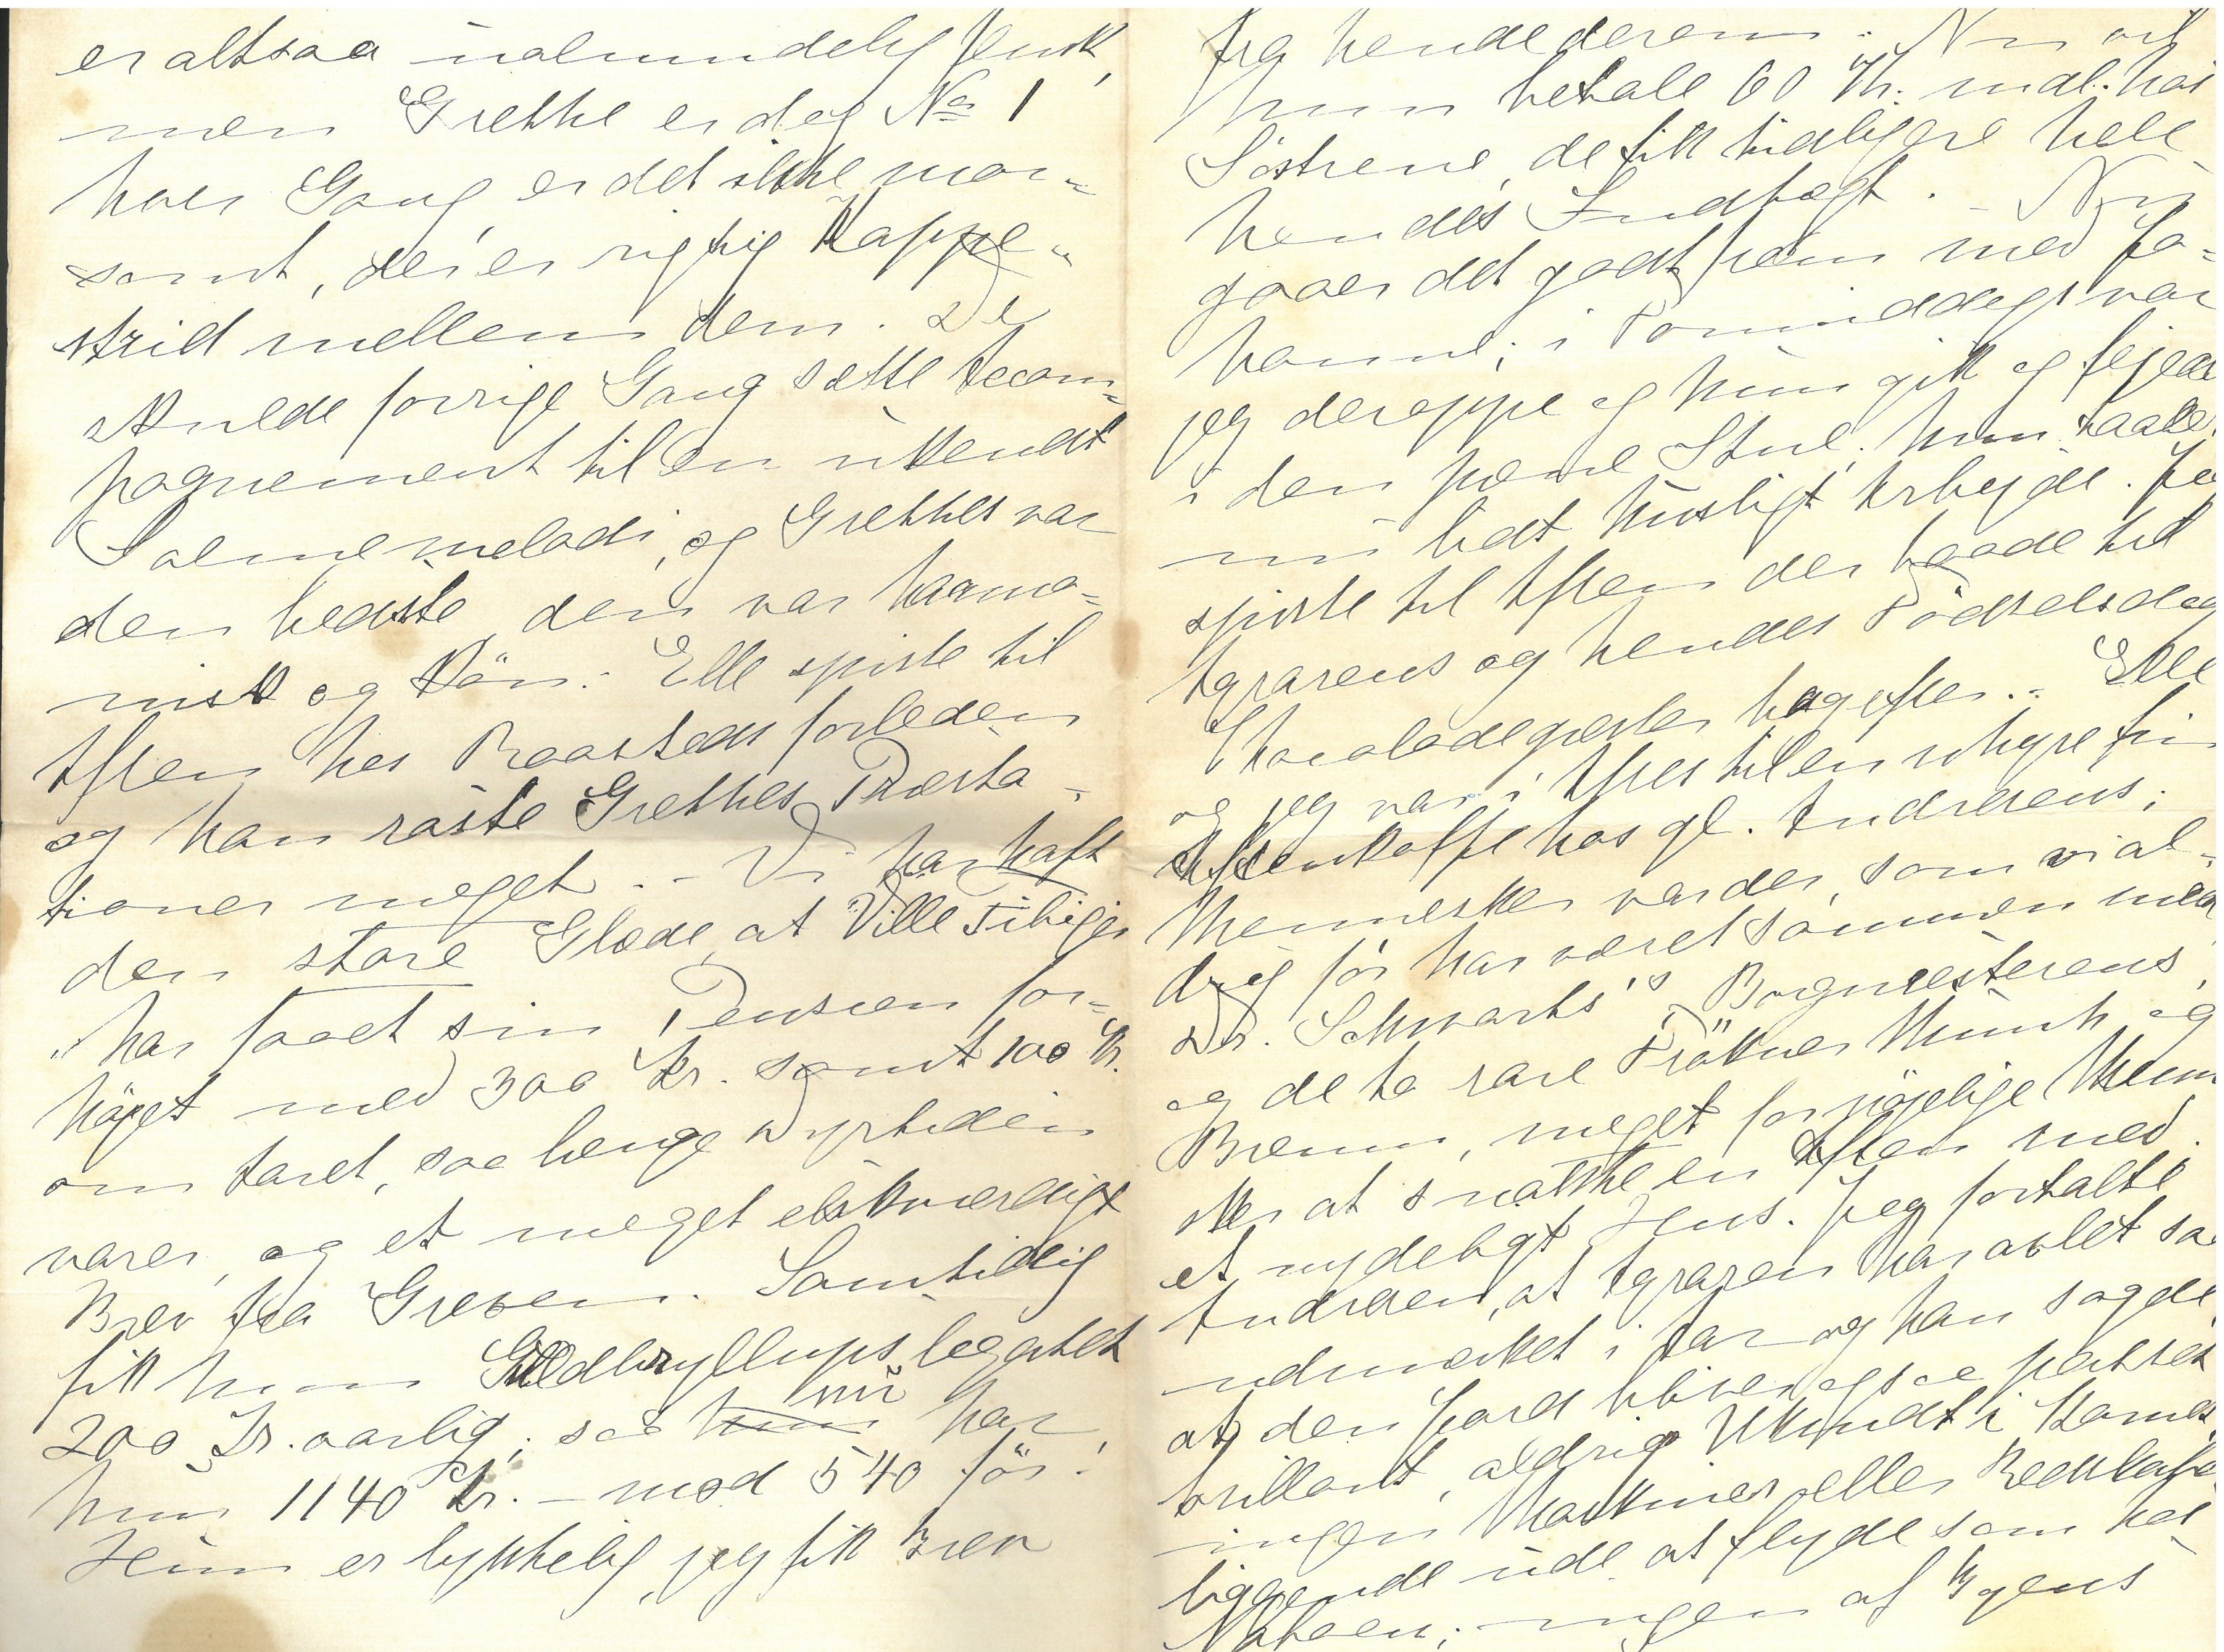 er altsaa ualmindelig flinck,
men Grethe er dog No 1
hver Gang er det ikke mor=
somt, der er rigtig Kappe=
strid mellem dem. De
skulde forrige Gang sætte Accom=
pagnement til en ukendt
Salmemelodi, og Grethes var
den bedste, den var harmo=
nisk og kön. Elle spiste til
Aften hos Raasteds forleden
og han roste Grethes Præsta-
tioner meget. - Vi har haft
den store Glæde, at Ville Fibiger
har faaet sin Pension for=
höjet med 300 Kr. samt 100 Kr.
om Aaret, saa længe Dyrtiden
varer, og et meget elskværdigt
Brev fra Greven. Samtidig
fik hun Guldbryllupslegatet
200 Kr. aarlig; saa nu har
hun 1140 Kr. - mod 540 för!
Hun er lykkelig, jeg fik Brev
fra hende derom. Nu vil
hun betale 60 Kr. mdl. hos
Söstrene, de fik tidligere hele
hendes Indtægt. - Nu
gaaer det godt frem med Jo=
hanne; i Formiddags var
jeg deroppe og hun gik og fejede
i den pæne Stue; hun taaler
nu lidt husligt Arbejde. Jeg
spiste til Aften der baade til
Agrarens og hendes Födselsdag
Chocoladegæster bagefter. - Elle
og jeg var i Aftes til en uhyre fin
Aftenkaffe hos gl. Andresens;
Mennesker var der, som vi al-
drig för har været sammen med
Dr. Schwartz's, Borgmesterens,
og de to rare Frökner Münk og
Bremm, meget fornöjelige Menne
sker at snakke en Aften med.
et nydeligt Hus. Jeg fortalte
Andresen, at Agraren har avlet saa
udmærket i Aar og han sagde,
at den Jord bliver ogsaa passet
brillant, aldrig Ukrudt i Kornet
ingen Maskiner eller Redskaber
liggende ude at flyde som hos
Naboen; ingen af Byens